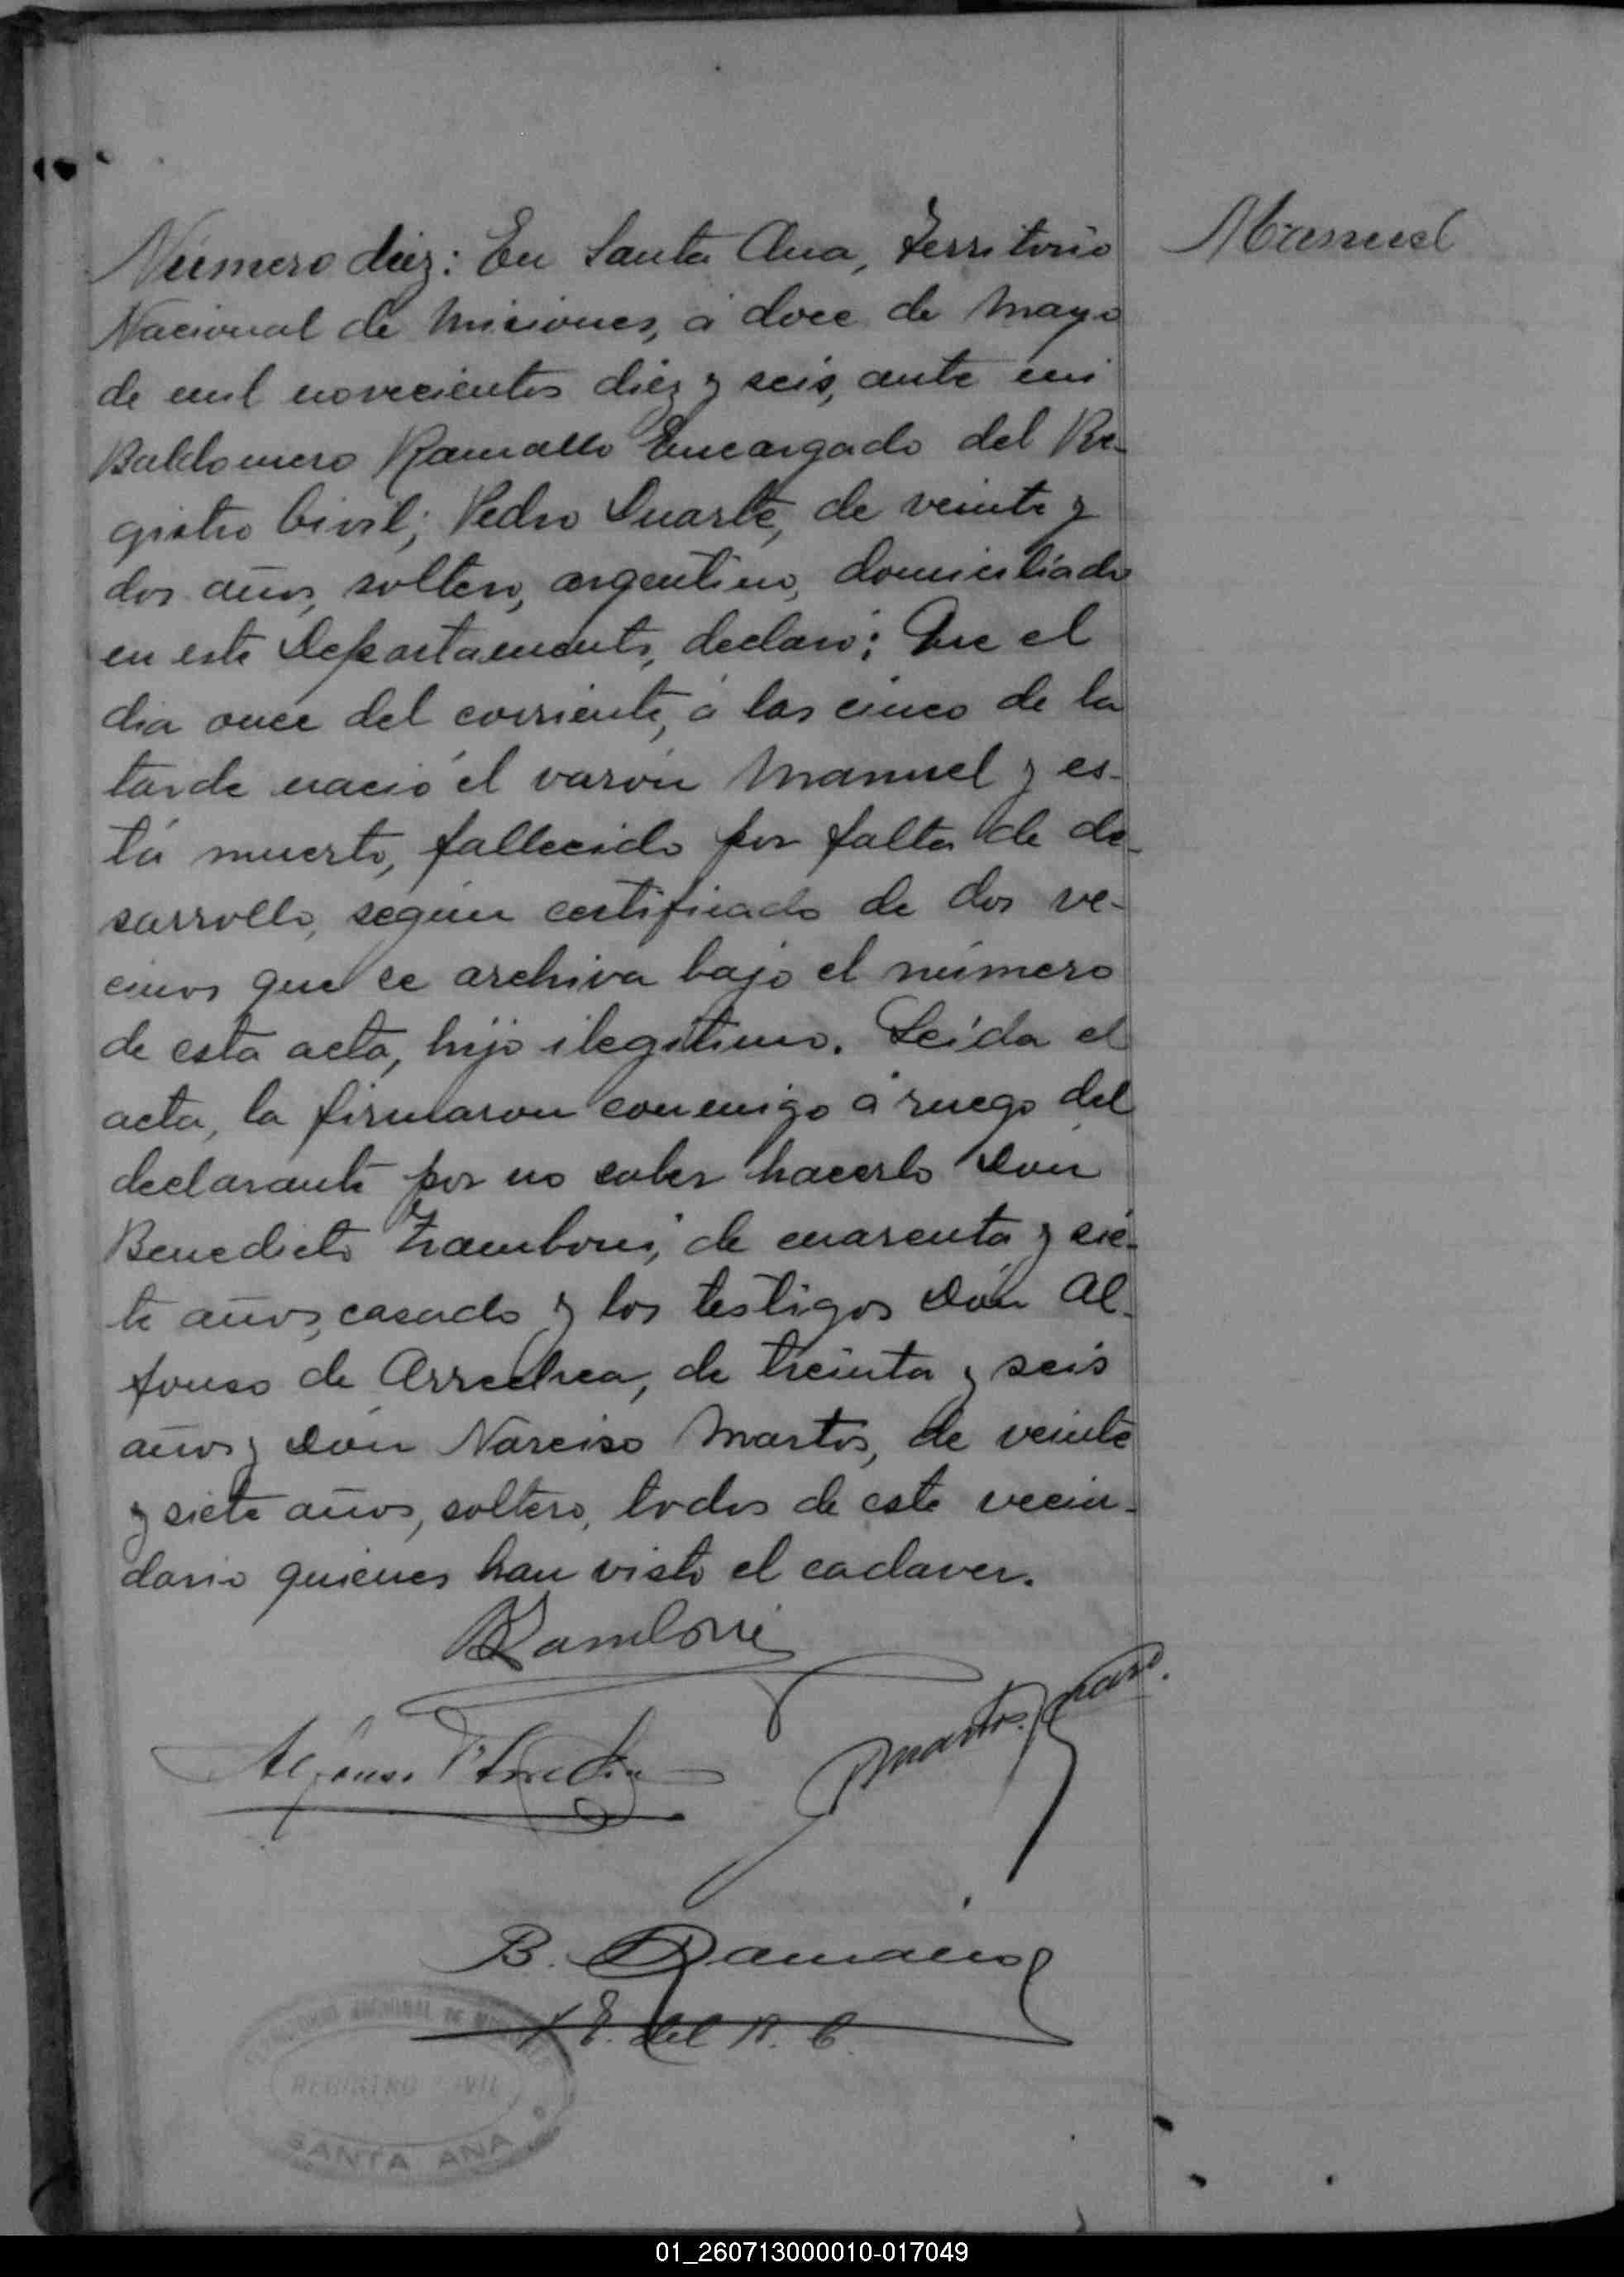 Número diez: En Santa Ana, Territorio
Manuel
Nacional de Misiones, á doce de Mayo
de mil novecientos diez y seis, ante mi
Baldomero Ramallo Encargado del Re-
gistro Civil; Pedro Duarte, de veinte y
dos años, soltero, argentino, domiciliado
en este Departamento, declaró: Que el
dia once del corriente, á las cinco de la
tarde nació el varón Manuel y es-
tá muerto, fallecido por falta de de-
sarrollo, según certificado de dos ve-
cinos que se archiva bajo el número
de esta acta, hijo ilegitimo. Leída el
acta, la firmaron conmigo á ruego del
declarante por no saber hacerlo Don
Benedicto Zamboni, de cuarenta y sie-
te años, casado y los testigos Don Al-
fonso de Arrechea, de treinta y seis
años y Don Narciso Martos, de veinte
y siete años, soltero, todos de este vecin-
dario quienes han visto el cadaver.
BZamboni
Alfonso
Martos
B. Ramallo
E. del R. C.
TERRITORIO NACIONAL DE MISIONES
REGISTRO CIVIL
SANTA ANA
01_260713000010-017049